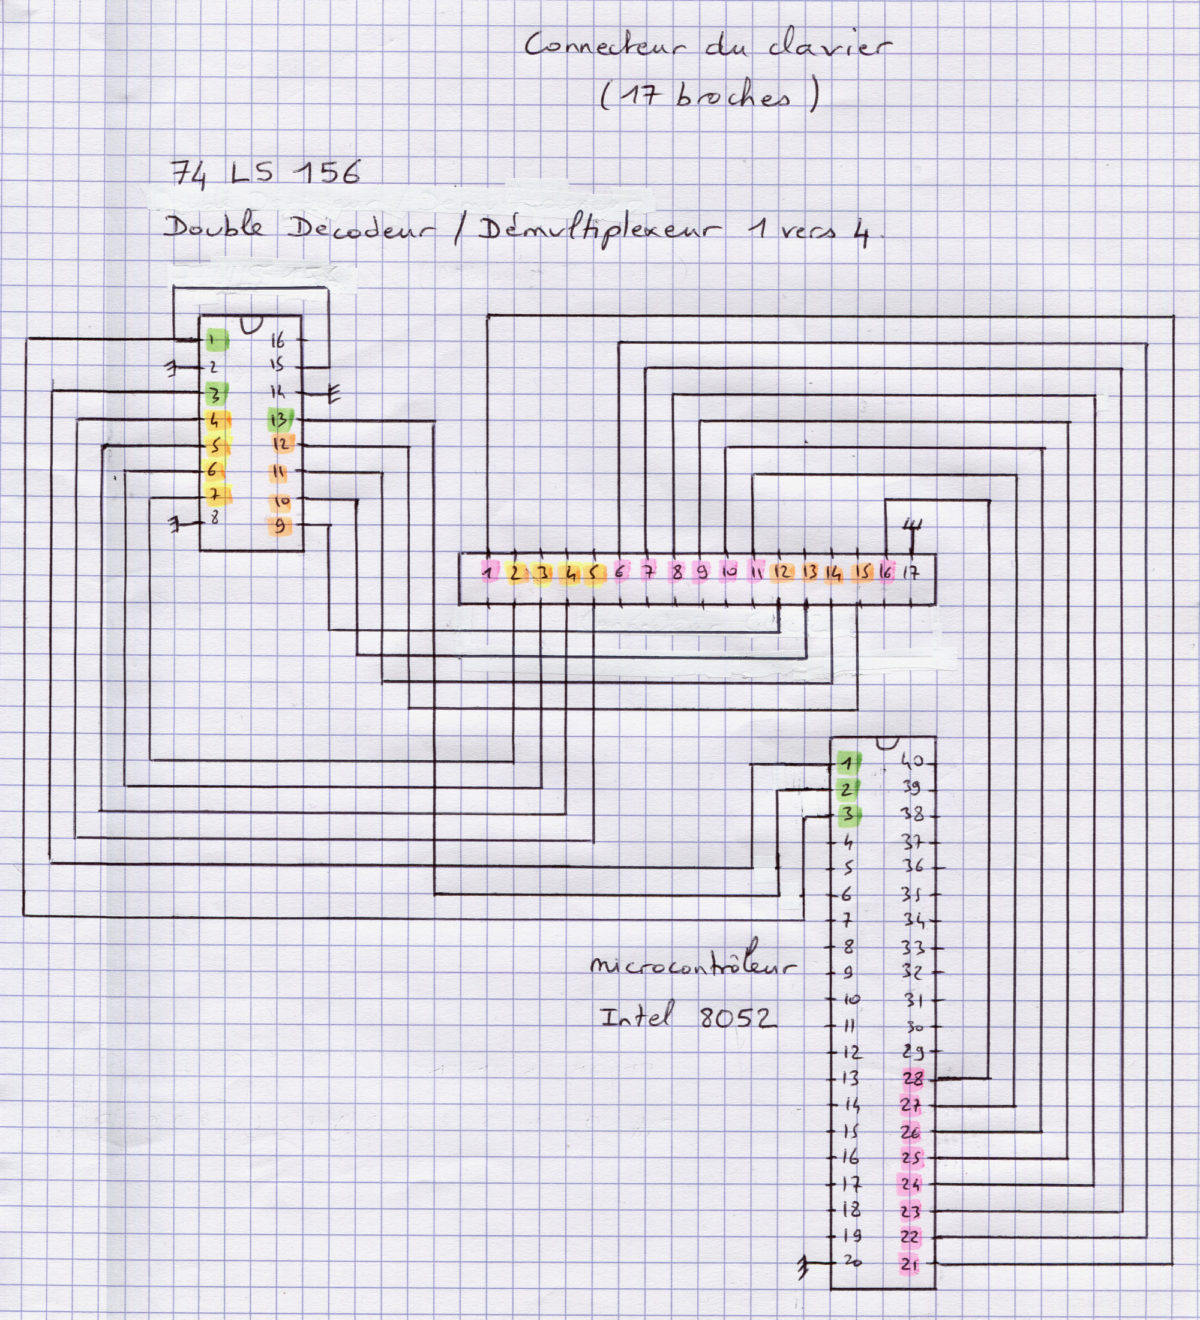 Connecteur du clavier
(17 broches)
74 LS 156
Double Décodeur / Démultiplexeur 1 vers 4.
1 16
2 15
3 14
4 13
5 12
6 11
7 10
8 9
1 2 3 4 5 6 7 8 9 10 11 12 13 14 15 16 17
1 40
2 39
3 38
4 37
5 36
6 35
7 34
8 33
9 32
10 31
11 30
12 29
13 28
14 27
15 26
16 25
17 24
18 23
19 22
20 21
microcontrôleur
Intel 8052